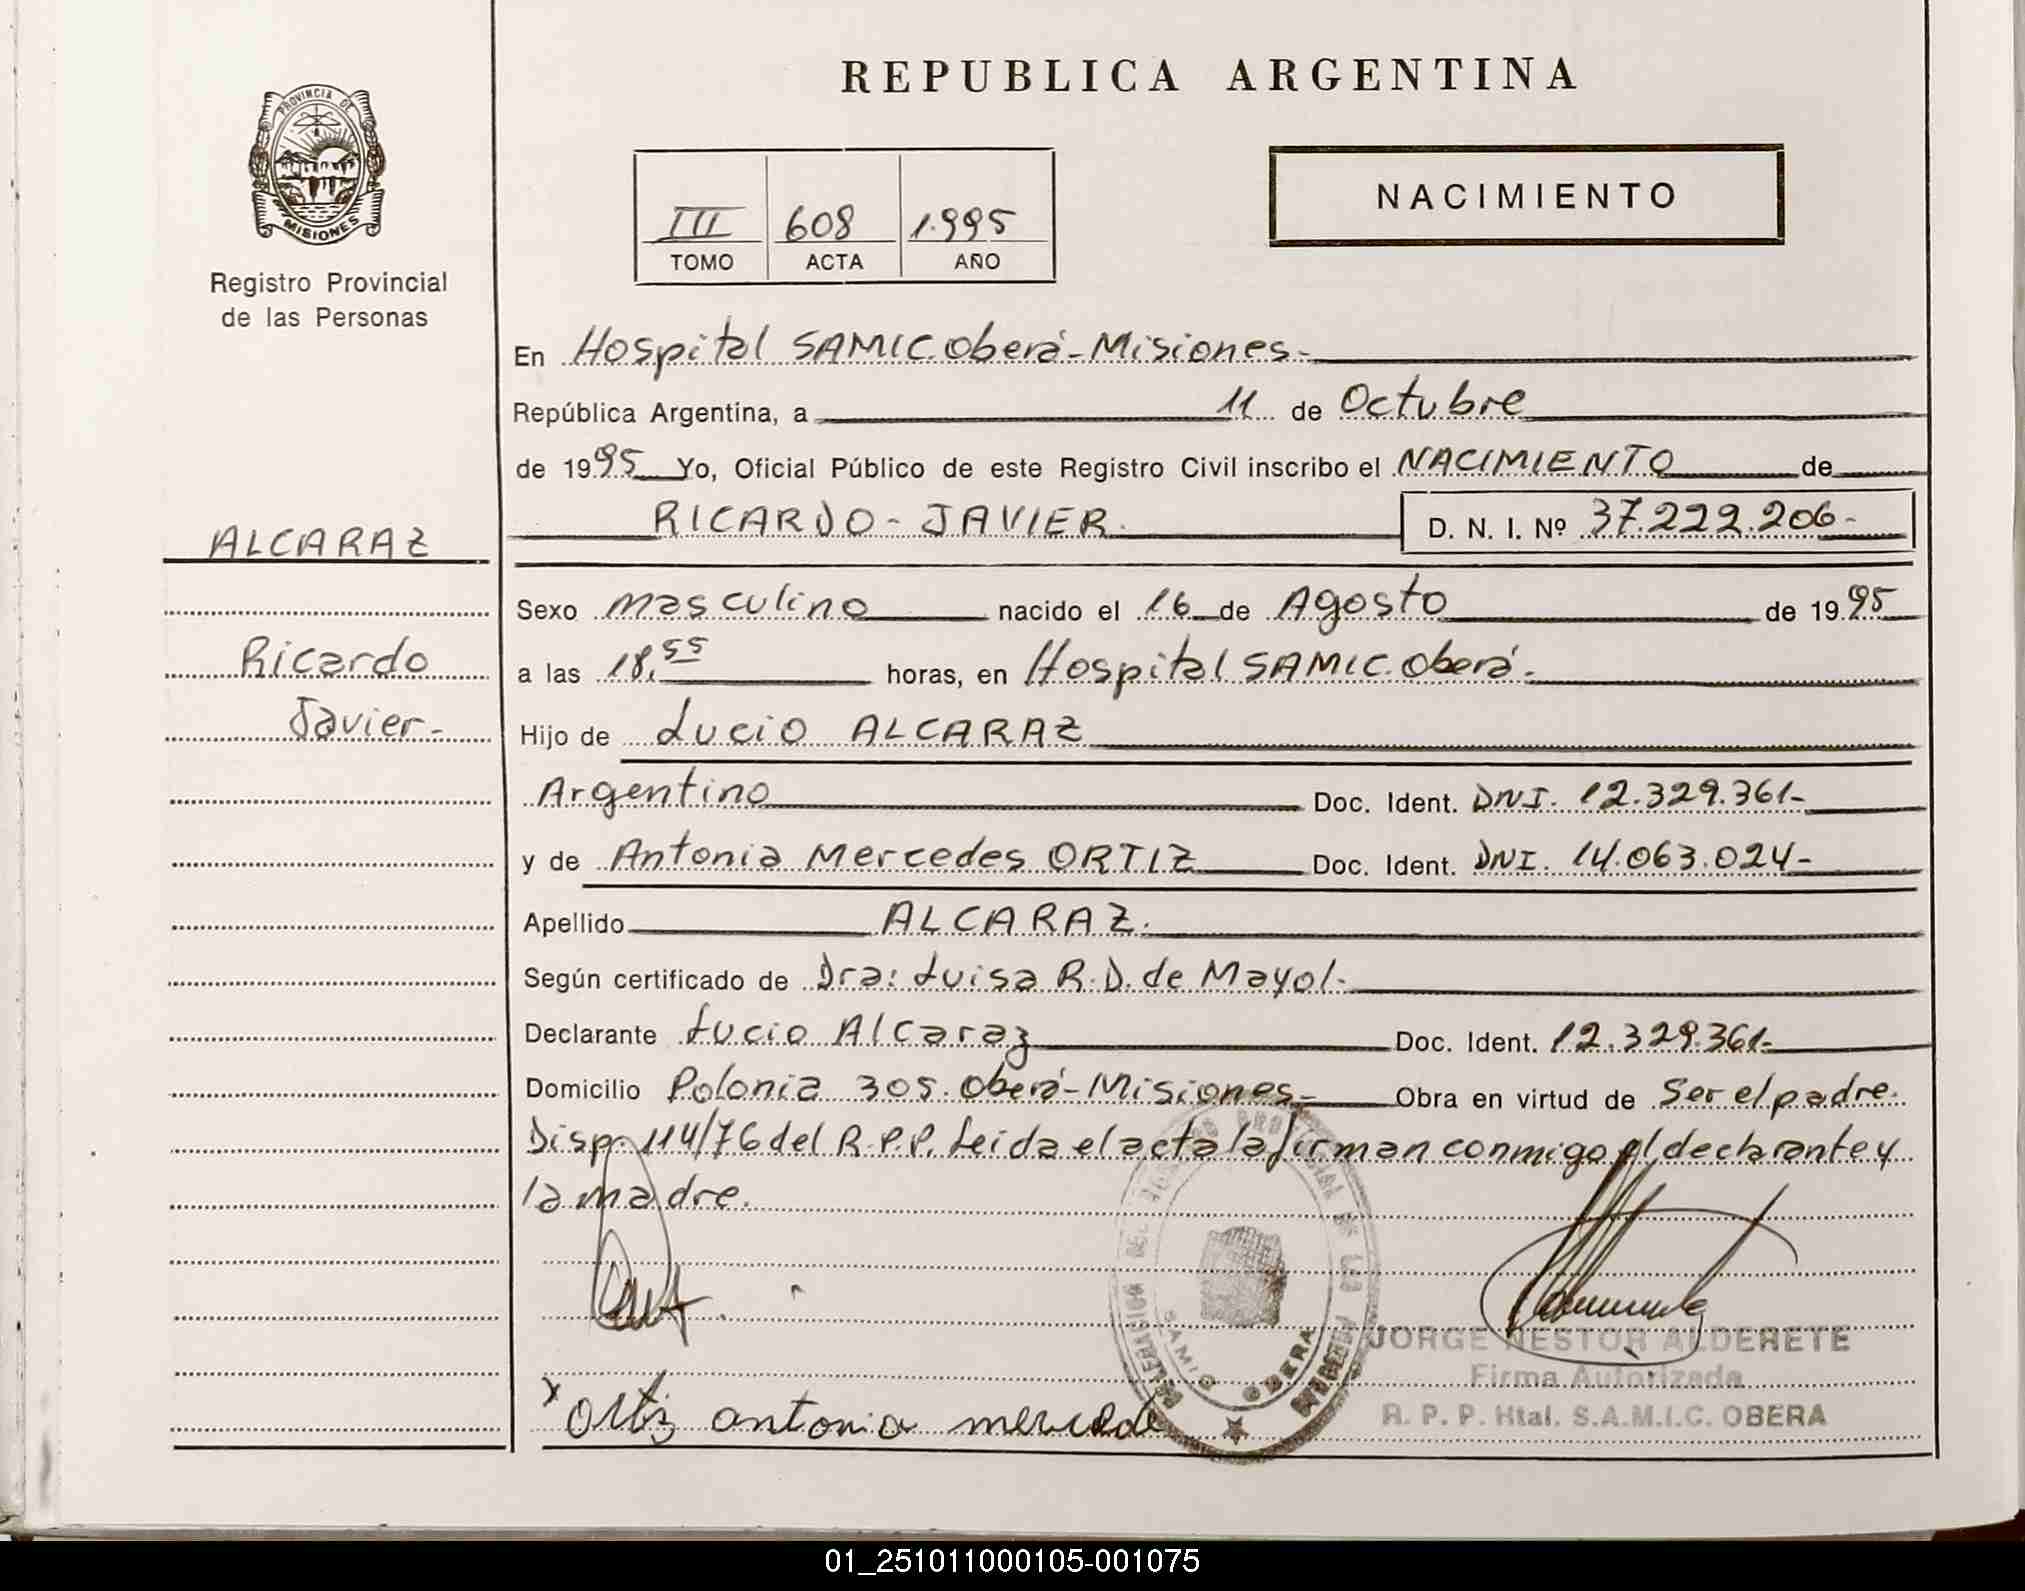 REPUBLICA ARGENTINA
PROVINCIA DE
MISIONES
Registro Provincial
de las Personas
NACIMIENTO
III 608 1.995
TOMO ACTA AÑO
En Hospital SAMIC. Oberá-Misiones-
República Argentina, a 11 de Octubre
de 1995 Yo, Oficial Público de este Registro Civil inscribo el NACIMIENTO de
RICARDO-JAVIER. D. N. I. Nº 37.222.206-
ALCARAZ
Ricardo
Javier-
Sexo masculino nacido el 16 de Agosto de 1995
a las 18,55 horas, en Hospital SAMIC. Oberá-
Hijo de Lucio ALCARAZ
Argentino Doc. Ident. DNI. 12.329.361-
y de Antonia Mercedes ORTIZ Doc. Ident. DNI. 14.063.024-
Apellido ALCARAZ.
Según certificado de Dra: Luisa R.D. de Mayol-
Declarante Lucio Alcaraz Doc. Ident. 12.329.361-
Domicilio Polonia 305. Oberá-Misiones- Obra en virtud de Ser el padre.
Disp. 114/76 del R.P.P. Leida el acta la firman conmigo el declarante y
la madre.
SAMIC OBERA
JORGE NESTOR ALDERETE
Firma Autorizada
R. P. P. Htal. S.A.M.I.C. OBERA
x Ortiz antonia mercede
01_251011000105-001075